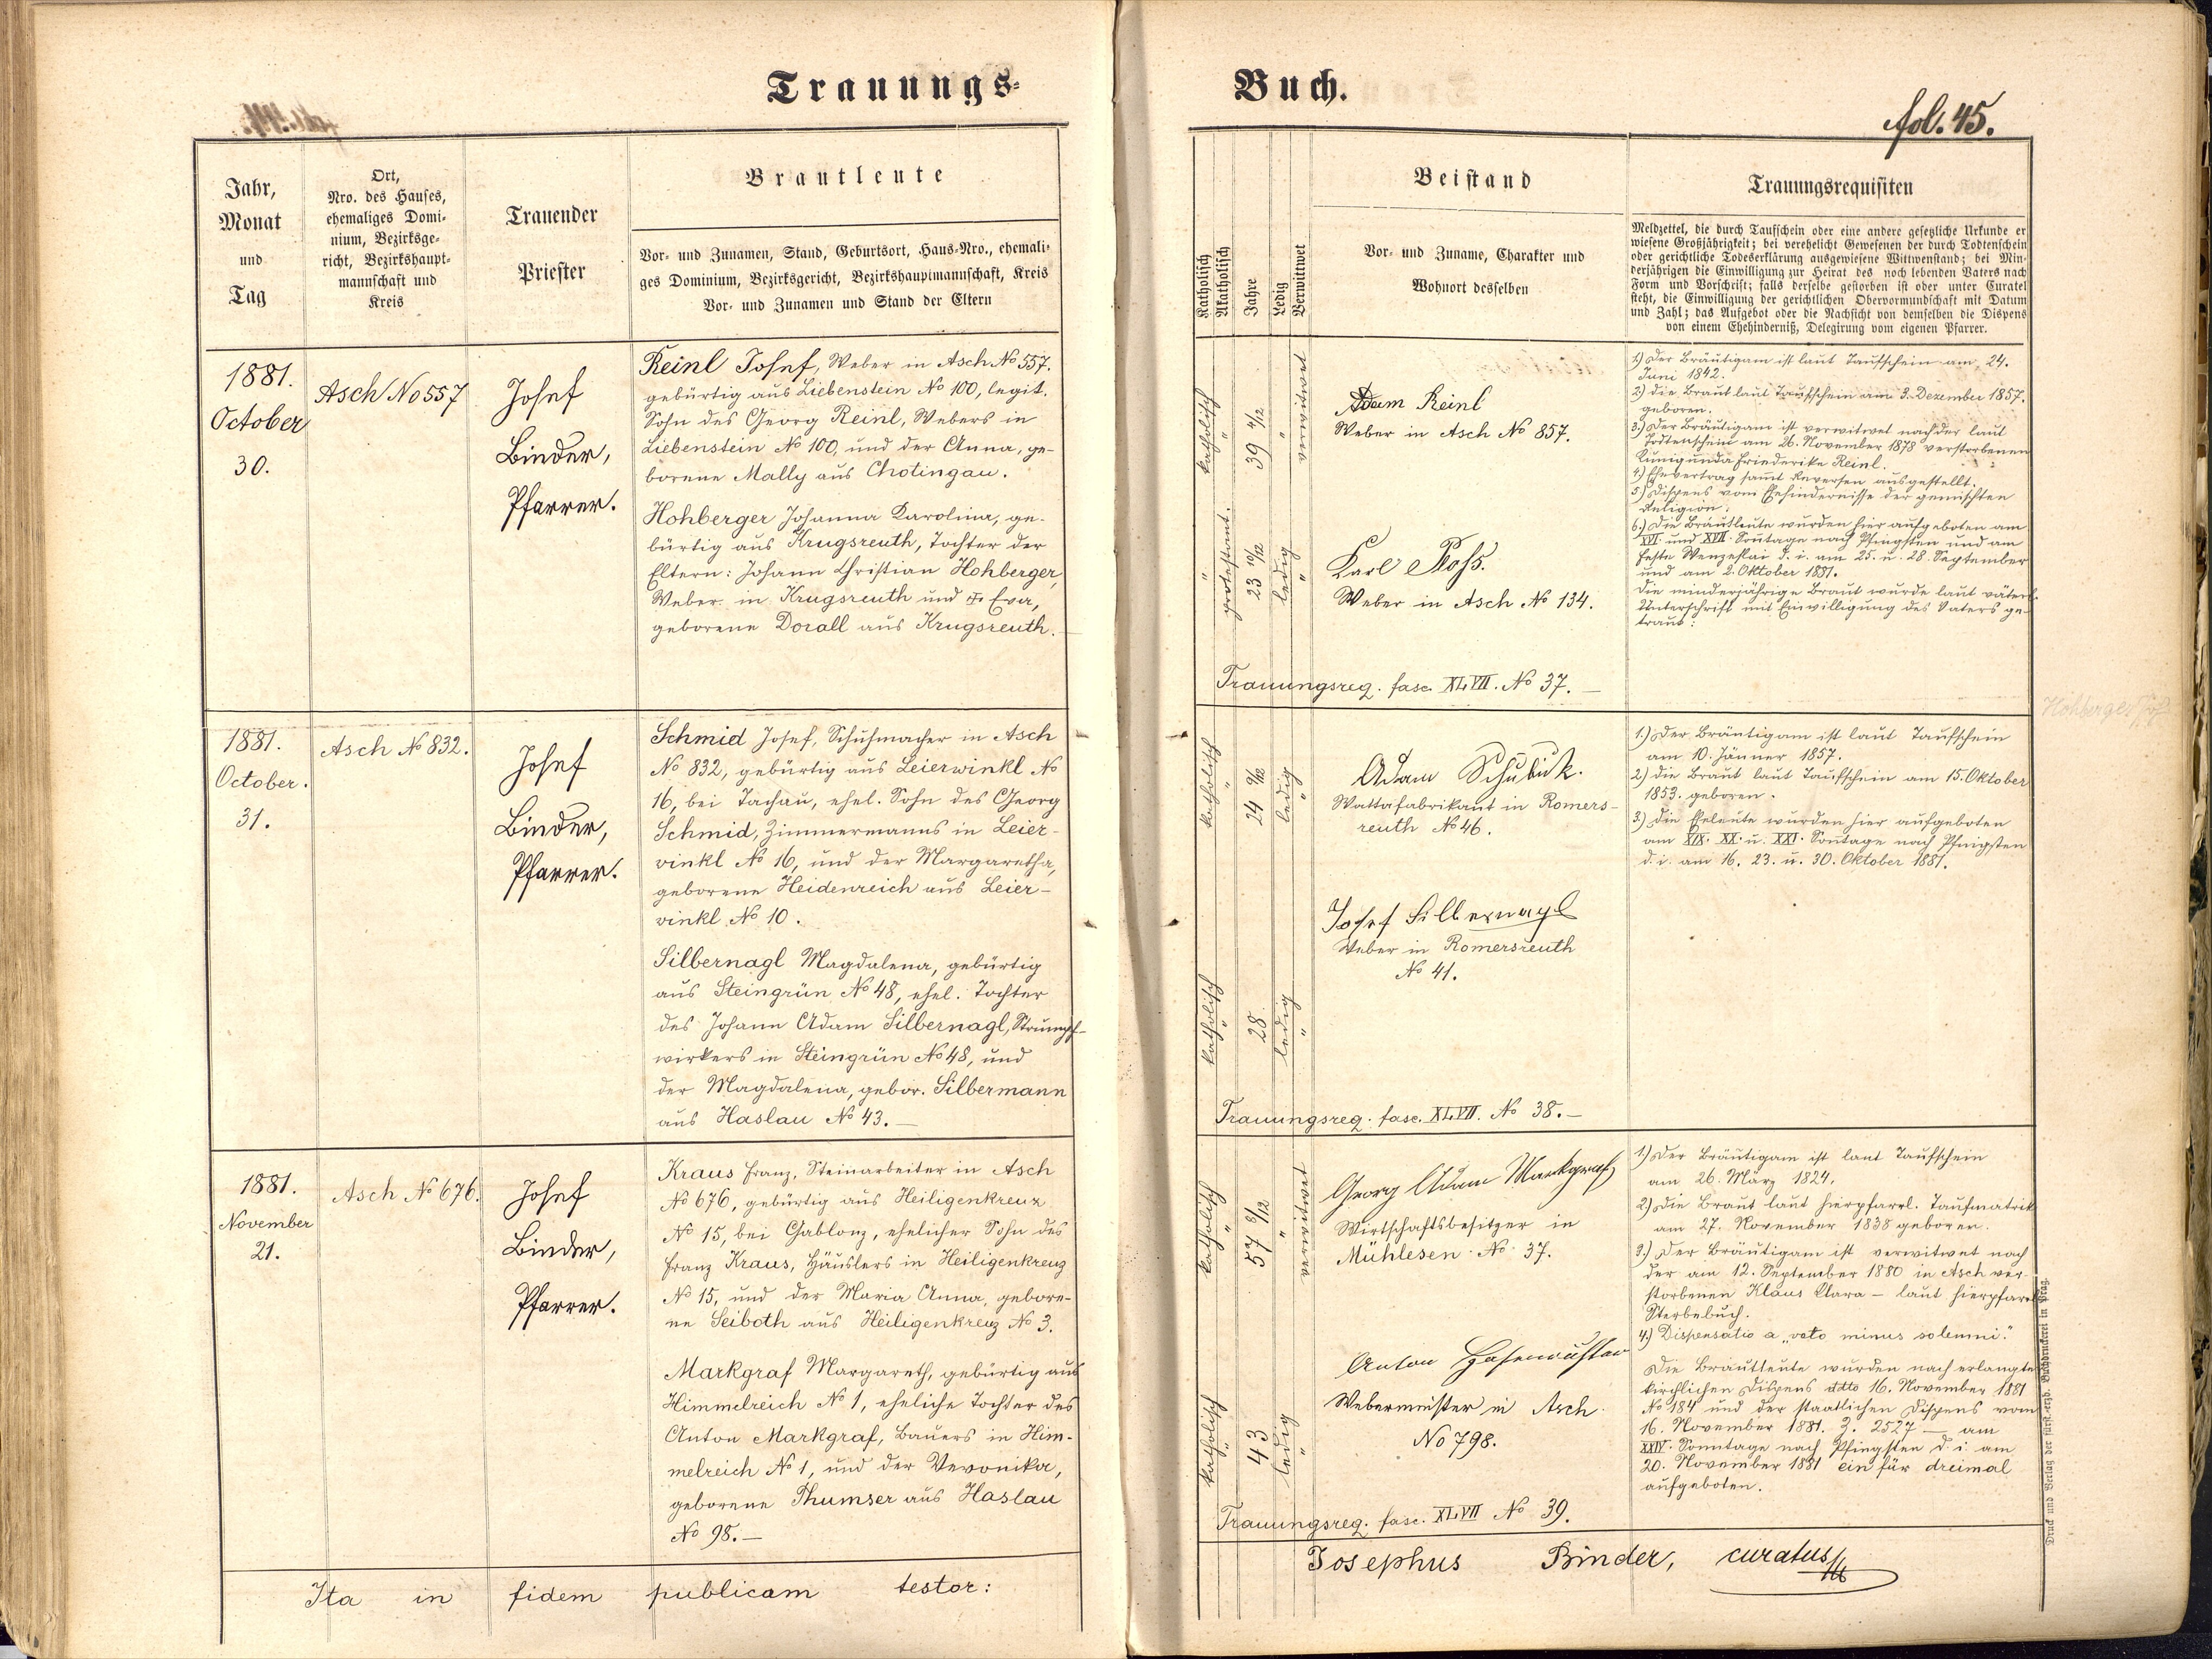 Trauungs-
Buch.
fol. 45.
Jahr,
Monat
und
Tag
Ort,
Nro. des Hauses,
ehemaliges Domi-
nium, Bezirksge-
richt, Bezirkshaupt-
mannschaft und
Kreis
Trauender
Priester
Brautleute
Vor- und Zunamen, Stand, Geburtsort, Haus-Nro., ehemali-
ges Dominium, Bezirksgericht, Bezirkshauptmannschaft, Kreis
Vor- und Zunamen und Stand der Eltern
Katholisch
Akatholisch
Jahre
Ledig
Verwittwet
Beistand
Vor- und Zuname, Charakter und
Wohnort desselben
Trauungsrequisiten
Meldzettel, die durch Taufschein oder eine andere gesetzliche Urkunde er
wiesene Großjährigkeit; bei verehelicht Gewesenen der durch Todtenschein
oder gerichtliche Todeserklärung ausgewiesene Wittwenstand; bei Min-
derjährigen die Einwilligung zur Heirat des noch lebenden Vaters nach
Form und Vorschrift; falls derselbe gestorben ist oder unter Curatel
steht, die Einwilligung der gerichtlichen Obervormundschaft mit Datum
und Zahl; das Aufgebot oder die Nachsicht von demselben die Dispens
von einem Ehehinderniß, Delegirung vom eigenen Pfarrer.
1881.
October
30.
Asch No 557
Josef
Binder,
Pfarrer.
Reinl Josef, Weber in Asch No 557.
gebürtig aus Liebenstein No 100, legit.
Sohn des Georg Reinl, Webers in
Liebenstein No 100, und der Anna, ge-
borene Mally aus Chotingau.
Hohberger Johanna Karolina, ge-
bürtig aus Krugsreuth, Tochter der
Eltern: Johann Christian Hohberger,
Weber in Krugsreuth und Eva,
geborene Dorall aus Krugsreuth.
katholisch
"
39 4/12
"
verwitwet
"
protestant.
23 10/12
ledig
"
Adam Reinl
Weber in Asch No 857.
Karl Ploß.
Weber in Asch No 134.
Trauungsreq. fasc. XLVII. No 37. —
1) Der Bräutigam ist laut Taufschein am 24.
Juni 1842.
2) die Braut laut Taufschein am 3. Dezember 1857.
geboren.
3.) Der Bräutigam ist verwitwet nach der laut
Todtenschein am 26. November 1878 verstorbenen
Kunigunda Friederike Reinl.
4.) Ehevertrag samt Reversen ausgestellt.
5.) Dispens vom Ehehindernisse der gemischten
Religion.
6.) Die Brautleute wurden hier aufgeboten am
XVI. und XVII. Sonntage nach Pfingsten und am
Feste Wenzeslai d. i. am 25. u. 28. September
und am 2. Oktober 1881.
Die minderjährige Braut wurde laut väterl.
Unterschrift mit Einwilligung des Vaters ge-
traut:
1881.
October.
31.
Asch No 832.
Josef
Binder,
Pfarrer.
Schmid Josef, Schuhmacher in Asch
No 832, gebürtig aus Leierwinkl No
16, bei Tachau, ehel. Sohn des Georg
Schmid, Zimmermanns in Leier-
winkl No 16, und der Margaretha,
geborene Heidenreich aus Leier-
winkl No 10.
Silbernagl Magdalena, gebürtig
aus Steingrün No 48, ehel. Tochter
des Johann Adam Silbernagl, Strumpf-
wirkers in Steingrün No 48, und
der Magdalena, gebor. Silbermann
aus Haslau No 43. —
katholisch
"
24 9/12
ledig
"
katholisch
"
28
ledig
"
Adam Schubuk.
Wattafabrikant in Romers-
reuth No 46.
Josef Silbernagl
Weber in Romersreuth
No 41.
Trauungsreq. fasc. XLVII. No 38. —
1.) Der Bräutigam ist laut Taufschein
am 10. Jänner 1857.
2) die Braut laut Taufschein am 15. Oktober
1853. geboren.
3.) Die Eheleute wurden hier aufgeboten
am XIX. XX. u. XXI. Sonntage nach Pfingsten
d. i. am 16. 23. u. 30. Oktober 1881.
Hohberger
1881.
November
21.
Asch No 676.
Josef
Binder,
Pfarrer.
Kraus Franz, Steinarbeiter in Asch
No 676, gebürtig aus Heiligenkreuz
No 15, bei Gablonz, ehelicher Sohn des
Franz Kraus, Häuslers in Heiligenkreuz
No 15, und der Maria Anna, gebore-
ne Seiboth aus Heiligenkreuz No 3.
Markgraf Margareth, gebürtig aus
Himmelreich No 1, eheliche Tochter des
Anton Markgraf, Bauers in Him-
melreich No 1, und der Veronika,
geborene Thumser aus Haslau
No 98. —
katholisch
"
57 8/12
"
verwitwet
katholisch
"
43
ledig
"
Georg Adam Markgraf
Wirtschaftsbesitzer in
Mühlesen No 37.
Anton
Webermeister in Asch
No 798.
Trauungsreq. fasc. XLVII No 39.
1.) Der Bräutigam ist laut Taufschein
am 26. März 1824.
2) Die Braut laut hierpfarrl. Taufmatrik
am 27. November 1838 geboren.
3.) Der Bräutigam ist verwitwet nach
der am 12. September 1880 in Asch ver-
storbenen Klaus Clara — laut hierpfarrl.
Sterbebuch.
4.) Dispensatio a „voto minus solemni."
Die Brautleute wurden nach erlangter
kirchlichen Dispens ddto 16. November 1881
No 184 und der staatlichen Dispens vom
16. November 1881. Z. 2527 — am
XXIV. Sonntage nach Pfingsten d. i. am
20. November 1881 ein für dreimal
aufgeboten.
Ita in fidem publicam testor:
Josephus Binder, curatus
Druck und Verlag der fürst-erzb. Buchdruckerei in Prag.